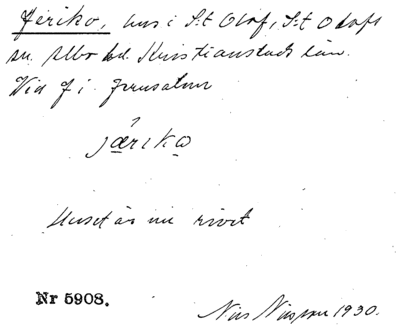 Jeriko, hus i S:t Olof, S:t Olofs
sn. Albo hd. Kristianstads län.
Vid f i Jerusalem
järiko
Huset är nu rivet
Nr 5908.
Nils Nilsson 1930.